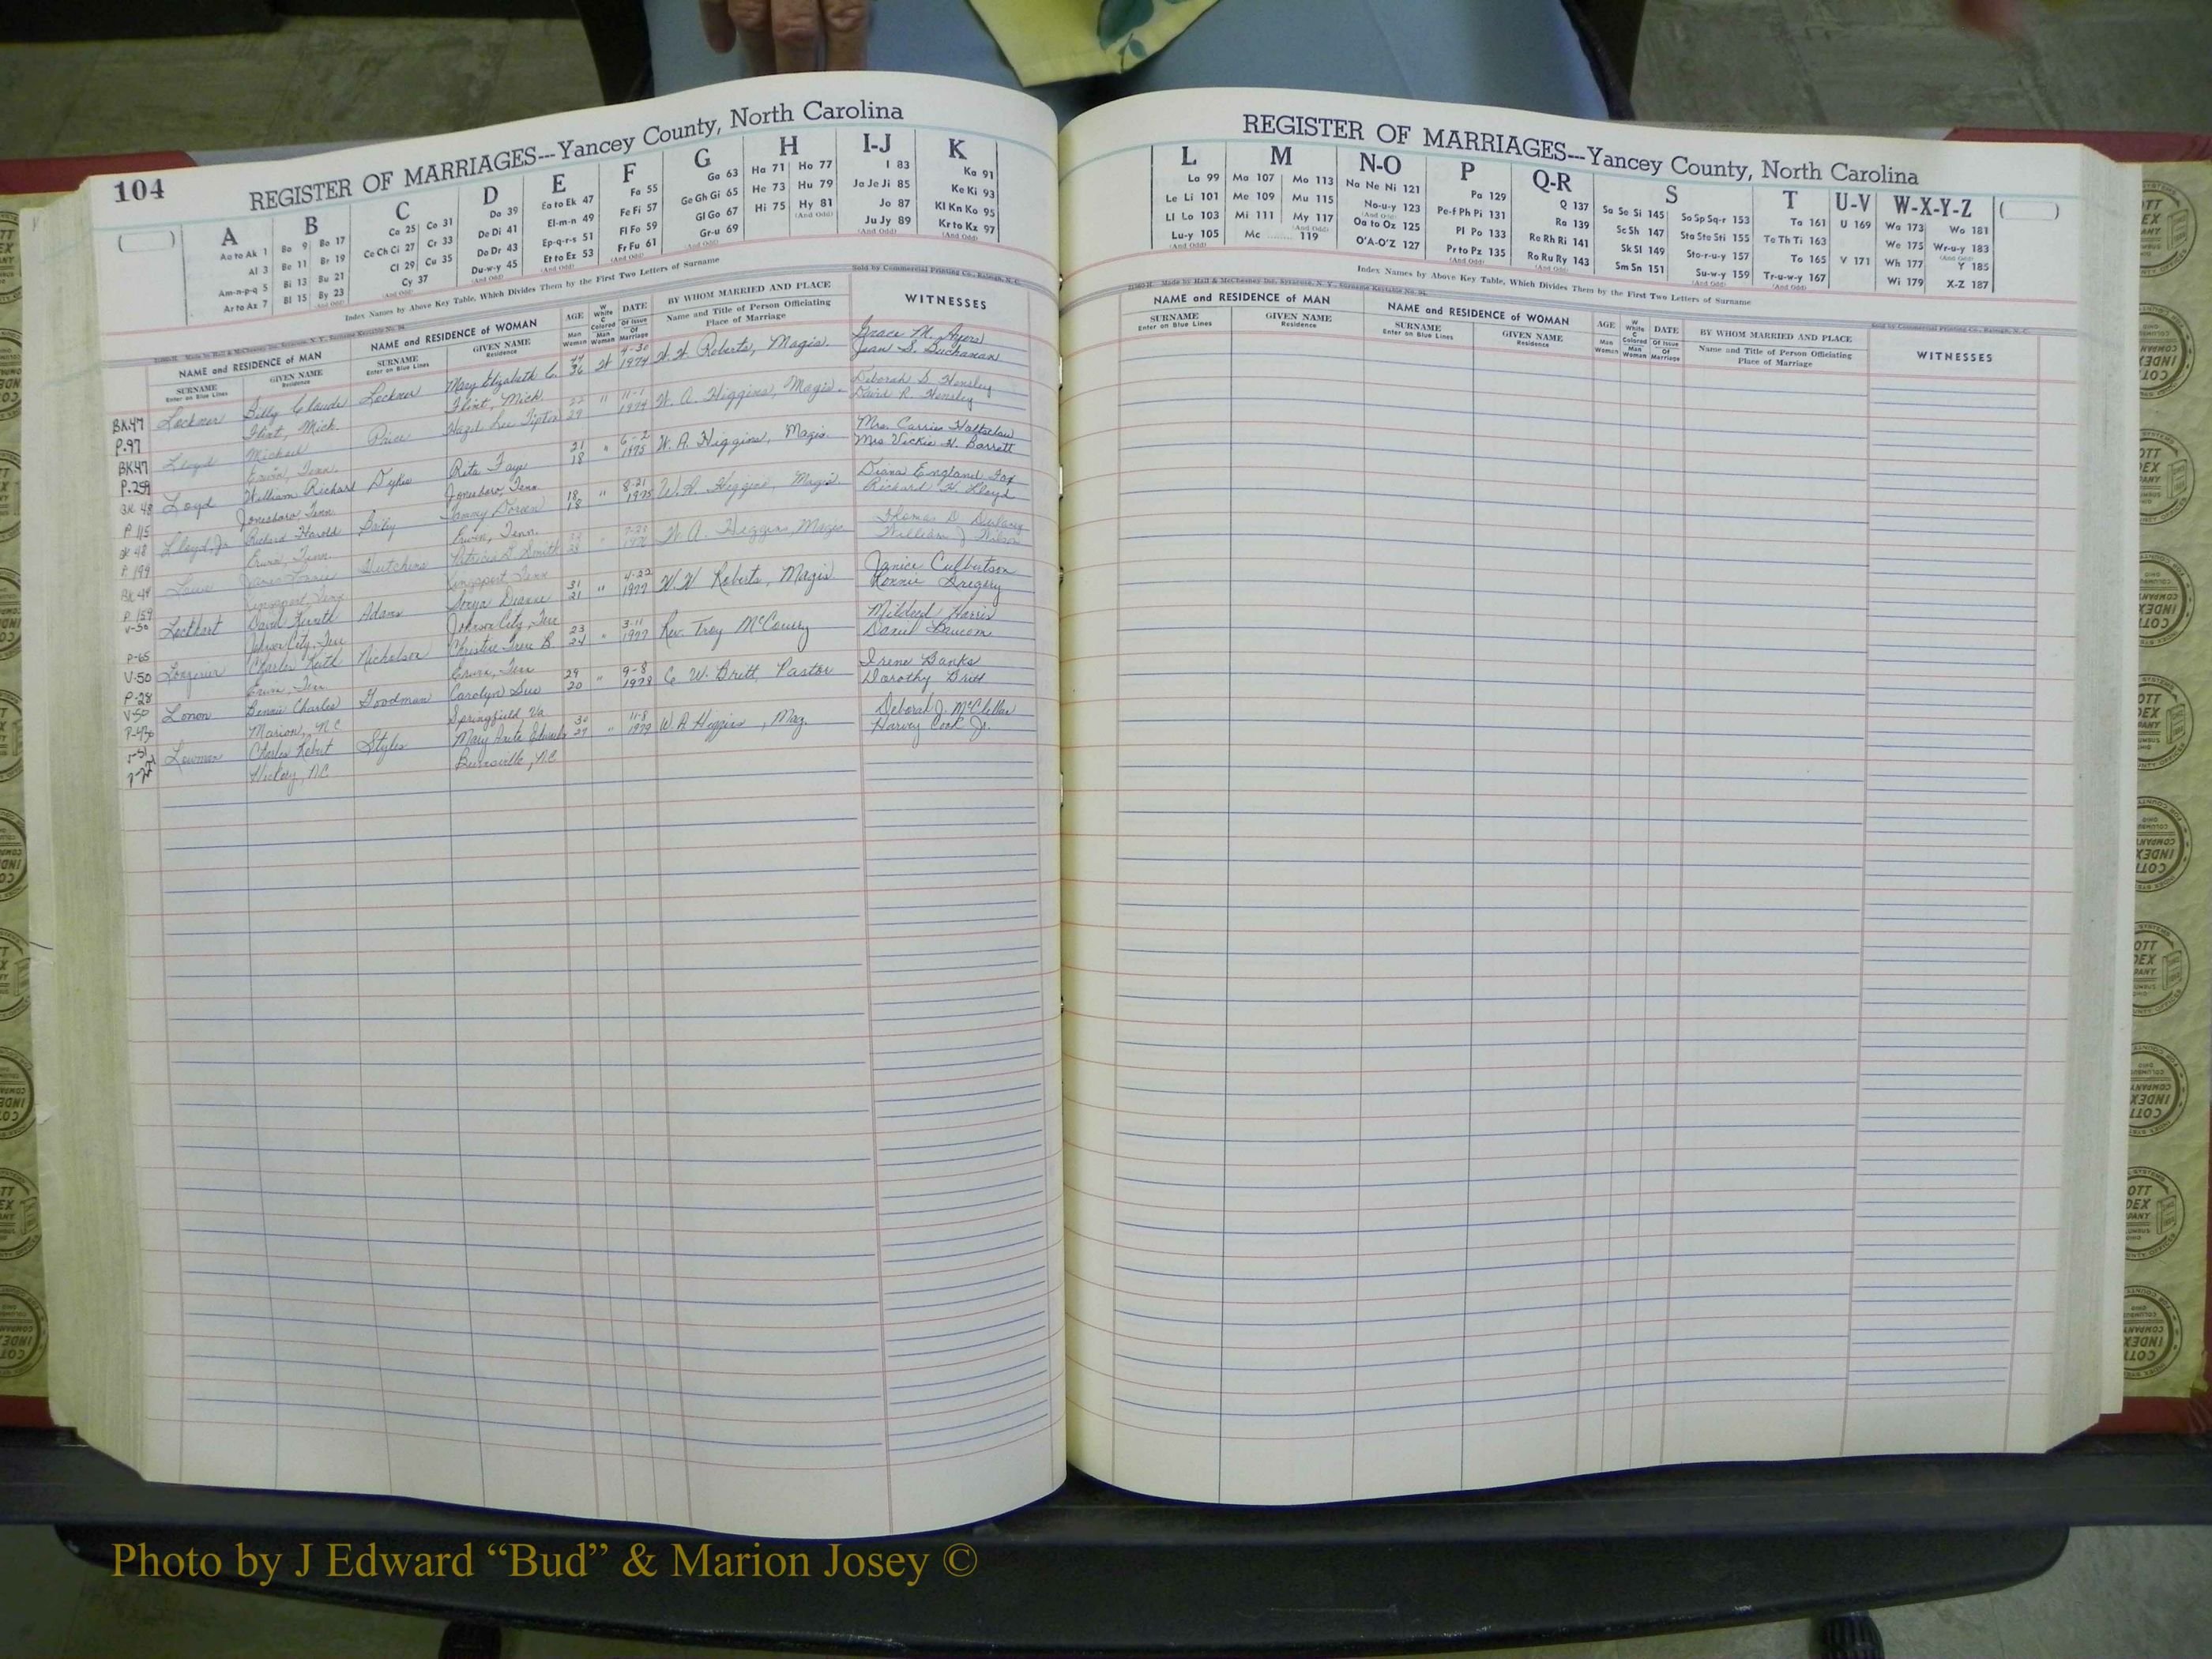 104
REGISTER OF MARRIAGES---Yancey County, North Carolina
A
Aa to Ak 1
Al 3
Am-n-p-q 5
Ar to Ax 7
B
Ba 9 Bo 17
Be 11 Br 19
Bi 13 Bu 21
Bl 15 By 23
(And Odd)
C
Ca 25 Co 31
Ce Ch Ci 27 Cr 33
Cl 29 Cu 35
Cy 37
(And Odd)
D
Da 39
De Di 41
Do Dr 43
Du-w-y 45
(And Odd)
E
Ea to Ek 47
El-m-n 49
Ep-q-r-s 51
Et to Ez 53
F
Fa 55
Fe Fi 57
Fl Fo 59
Fr Fu 61
(And Odd)
G
Ga 63
Ge Gh Gi 65
Gl Go 67
Gr-u 69
(And Odd)
H
Ha 71 Ho 77
He 73 Hu 79
Hi 75 Hy 81
(And Odd)
I-J
I 83
Ja Je Ji 85
Jo 87
Ju Jy 89
(And Odd)
K
Ka 91
Ke Ki 93
Kl Kn Ko 95
Kr to Kz 97
(And Odd)
Index Names by Above Key Table, Which Divides Them by the First Two Letters of Surname
Sold by Commercial Printing Co., Raleigh, N. C.
NAME and RESIDENCE of MAN NAME and RESIDENCE of WOMAN AGE DATE BY WHOM MARRIED AND PLACE WITNESSES
SURNAME GIVEN NAME SURNAME GIVEN NAME Man White C Colored Of Issue Name and Title of Person Officiating
Enter on Blue Lines Residence Enter on Blue Lines Residence Woman Man Woman Of Marriage Place of Marriage
BK47 Lockner Billy Claude Lockner Mary Elizabeth C. 36 W 4-30 1974 W. W. Roberts, Magis. Grace M. Ayers
P.97 Flint, Mich. Flint, Mich. Jean S. Buchanan
BK47 Lloyd Michael Price Hazel Lee Tipton 22 29 " 11-1 1974 W. A. Higgins, Magis. Deborah S. Hensley
P.259 Erwin, Tenn. David R. Hensley
BK 48 Loyd William Richard Dykes Rita Faye 21 18 " 6-2 1975 W. A. Higgins, Magis. Mrs. Carrie
P. 115 Jonesboro Tenn Jonesboro, Tenn Mrs Vickie H. Barrett
BK 48 Lloyd, Jr Richard Harold Tammy Doreen 18 18 " 8-21 1975 W. A. Higgins, Magis. Diana England Fox
P. 199 Erwin, Tenn. Erwin, Tenn. Richard H. Lloyd
BK 49 Hutchins Patricia Smith " W. A. Higgins, Magis Thomas D.
P. 159 Kingsport, Tenn Kingsport, Tenn William J. Wilson
V-50 Lockhart David Adams Sonya Dianne 31 21 " 4-22 1977 W. W Roberts, Magis Janice Culbertson
P-65 Johnson City, Ten Johnson City, Ten Ronnie Gregory
V-50 Charles Keith Nicholson Christine B 23 24 " 3-11 1977 Rev. Troy McCourry Mildred Harris
P-28 Erwin, Ten Erwin, Ten
V-50 Lonon Bennie Charles Goodman Carolyn Sue 29 20 " 9-8 1978 C W. Britt Pastor Irene Banks
Marion, NC Springfield Va Dorothy Britt
Lowman Charles Robert Styles Mary Anita Edwards 30 27 " 11-8 1979 W. A Higgins, Mag. Deborah J. McClellan
Hickory, NC Burnsville, NC Harvey Cook Jr.
REGISTER OF MARRIAGES---Yancey County, North Carolina
L
La 99
Le Li 101
Ll Lo 103
Lu-y 105
(And Odd)
M
Ma 107 Mo 113
Me 109 Mu 115
Mi 111 My 117
(And Odd)
Mc ........ 119
N-O
Na Ne Ni 121
No-u-y 123
(And Odd)
Oa to Oz 125
O'A-O'Z 127
P
Pa 129
Pe-f Ph Pi 131
Pl Po 133
Pr to Pz 135
(And Odd)
Q-R
Q 137
Ra 139
Re Rh Ri 141
Ro Ru Ry 143
(And Odd)
S
Sa Se Si 145 So Sp Sq-r 153
Sc Sh 147 Sta Ste Sti 155
Sk Sl 149 Sto-r-u-y 157
Sm Sn 151 Su-w-y 159
(And Odd)
T
Ta 161
Te Th Ti 163
To 165
Tr-u-w-y 167
(And Odd)
U-V
U 169
V 171
W-X-Y-Z
Wa 173 Wo 181
We 175 Wr-u-y 183
(And Odd)
Wh 177 Y 185
Wi 179 X-Z 187
Index Names by Above Key Table, Which Divides Them by the First Two Letters of Surname
Sold by Commercial Printing Co., Raleigh, N. C.
NAME and RESIDENCE of MAN NAME and RESIDENCE of WOMAN AGE DATE BY WHOM MARRIED AND PLACE WITNESSES
SURNAME GIVEN NAME SURNAME GIVEN NAME Man White C Colored Of Issue Name and Title of Person Officiating
Enter on Blue Lines Residence Enter on Blue Lines Residence Woman Man Woman Of Marriage Place of Marriage
Photo by J Edward “Bud” & Marion Josey ©